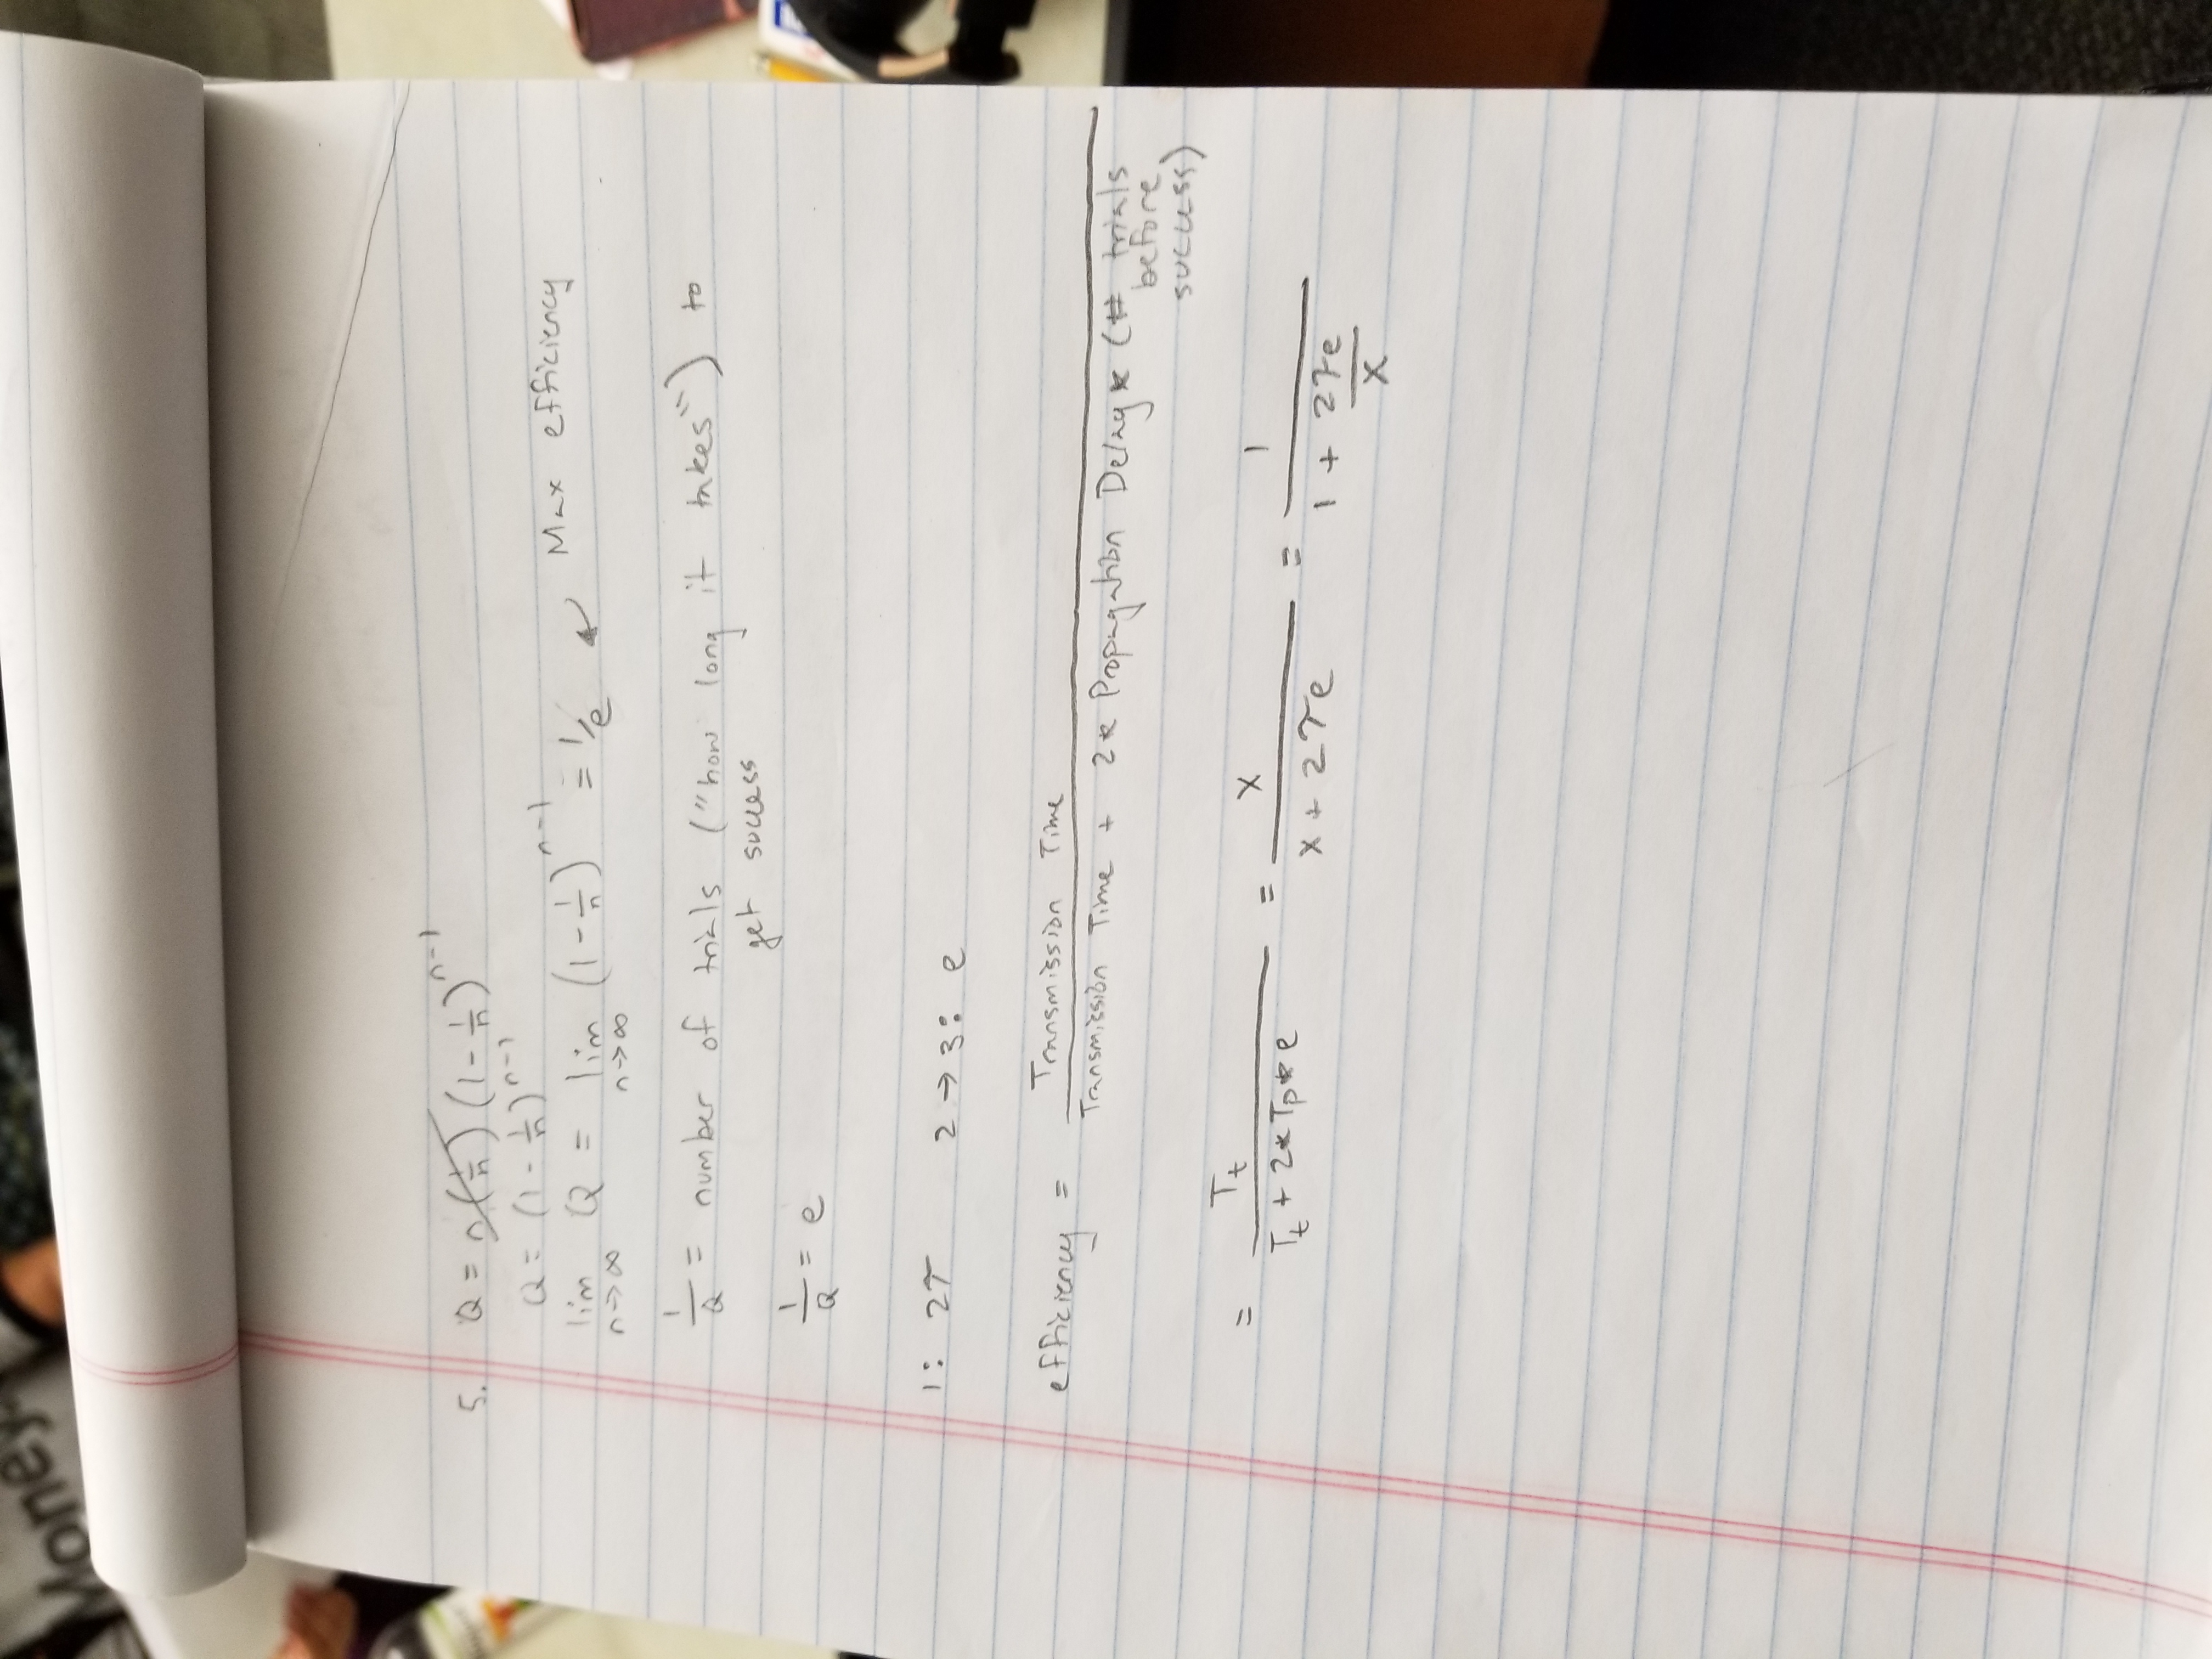 Money
5. Q = n(1/n) (1 - 1/n)^n-1
Q = (1 - 1/n)^n-1
lim n→∞ Q = lim n→∞ (1 - 1/n)^n-1 = 1/e ↙ Max efficiency
1/Q = number of trials ("how long it takes") to
get success
1/Q = e
1: 2τ 2 → 3: e
efficiency = Transmission Time / Transmission Time + 2* Propagation Delay * (# trials
before
success)
= Tt / Tt + 2*Tp*e = x / x + 2τe = 1 / 1 + 2τe/x